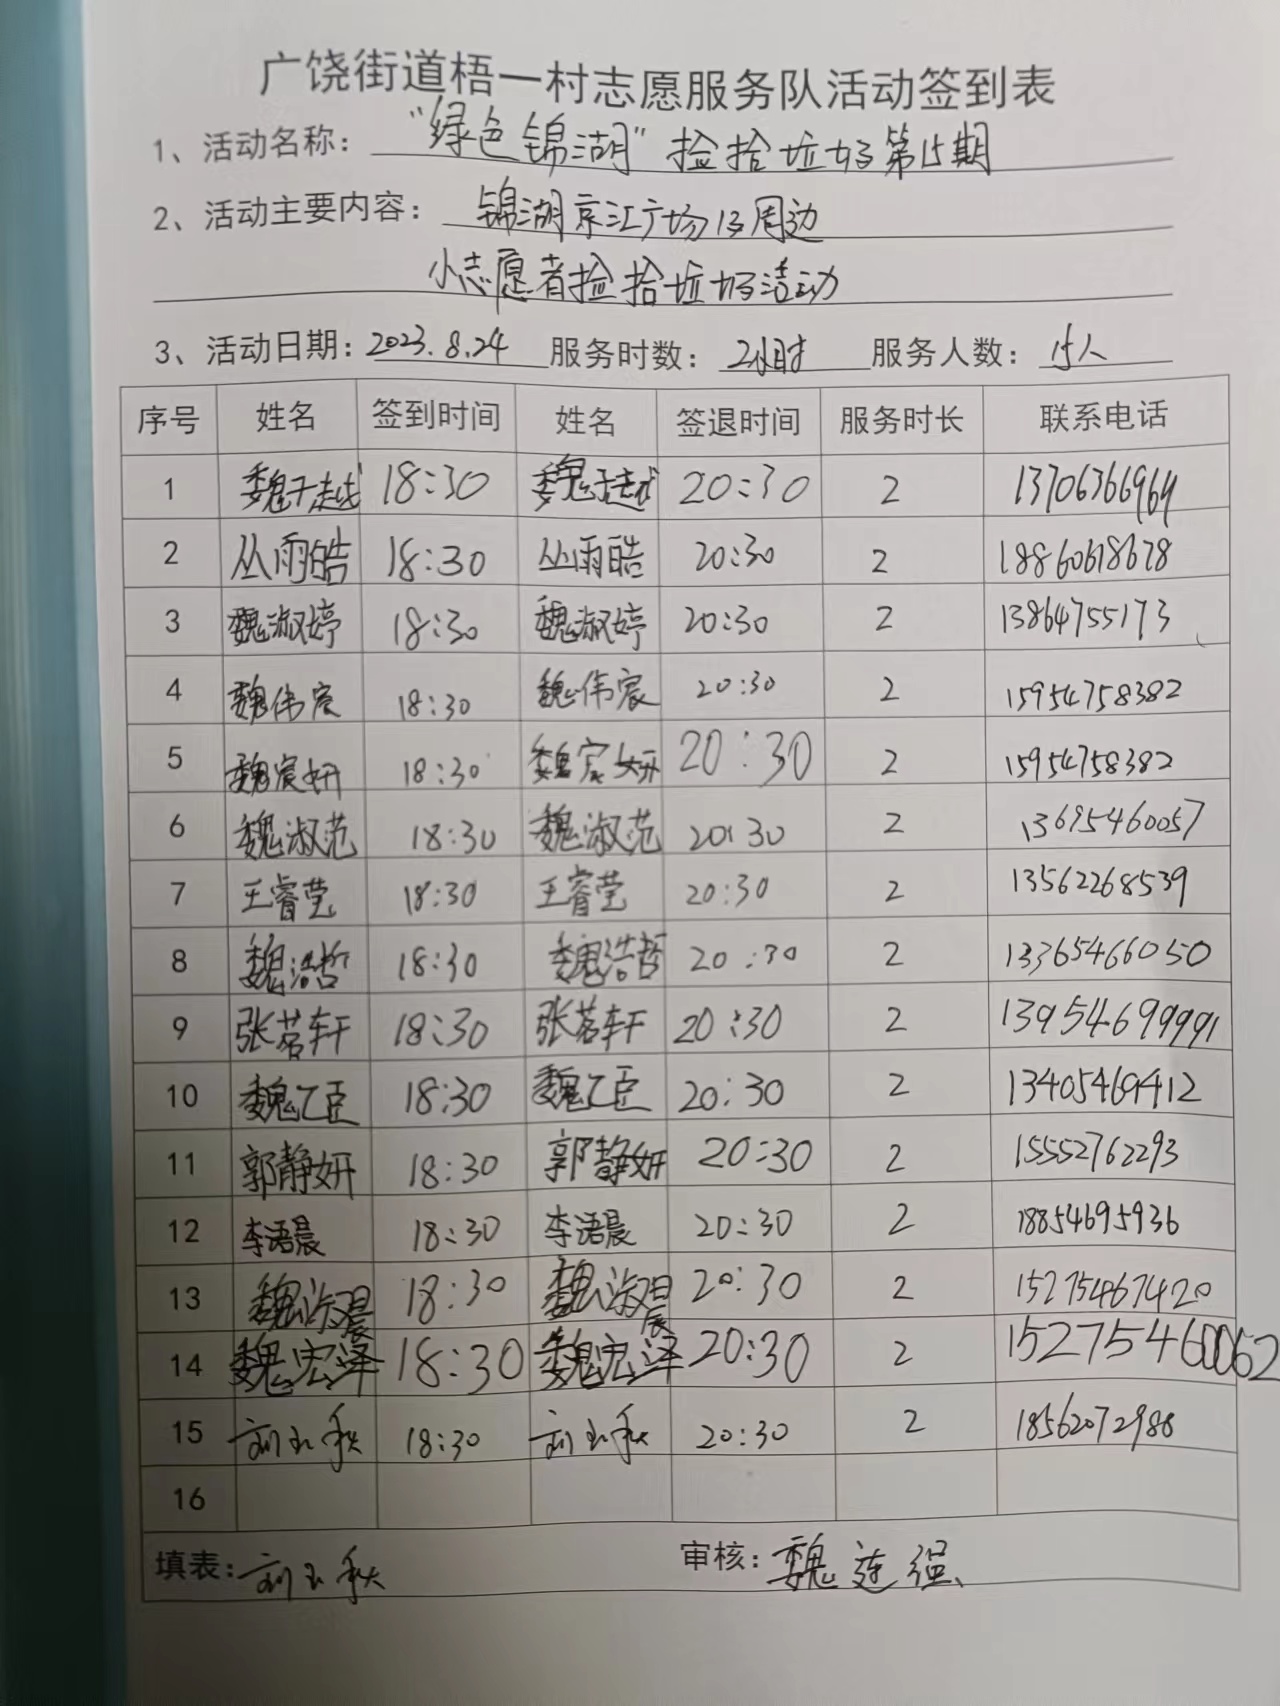 广饶街道梧一村志愿服务队活动签到表
1、活动名称：“绿色锦湖”捡拾垃圾第15期
2、活动主要内容：锦湖京江广场及周边
小志愿者捡拾垃圾活动
3、活动日期：2023.8.24 服务时数：2小时 服务人数：15人
序号 姓名 签到时间 姓名 签退时间 服务时长 联系电话
1 魏子越 18:30 魏子越 20:30 2 13706366964
2 丛雨皓 18:30 丛雨皓 20:30 2 18860618678
3 魏淑婷 18:30 魏淑婷 20:30 2 13864755173
4 魏伟宸 18:30 魏伟宸 20:30 2 15954758382
5 魏宸妍 18:30 魏宸妍 20:30 2 15954758382
6 魏淑范 18:30 魏淑范 20:30 2 13695460057
7 王睿莹 18:30 王睿莹 20:30 2 13562268539
8 魏浩哲 18:30 魏浩哲 20:30 2 13365466050
9 张茗轩 18:30 张茗轩 20:30 2 13954699991
10 魏乙臣 18:30 魏乙臣 20:30 2 13405469412
11 郭静妍 18:30 郭静妍 20:30 2 15552762293
12 李语晨 18:30 李语晨 20:30 2 18854695936
13 魏淑晨 18:30 魏淑晨 20:30 2 15275467420
14 魏宏泽 18:30 魏宏泽 20:30 2 15275460062
15 刘玉秋 18:30 刘玉秋 20:30 2 18562072988
16
填表：刘玉秋 审核：魏连强